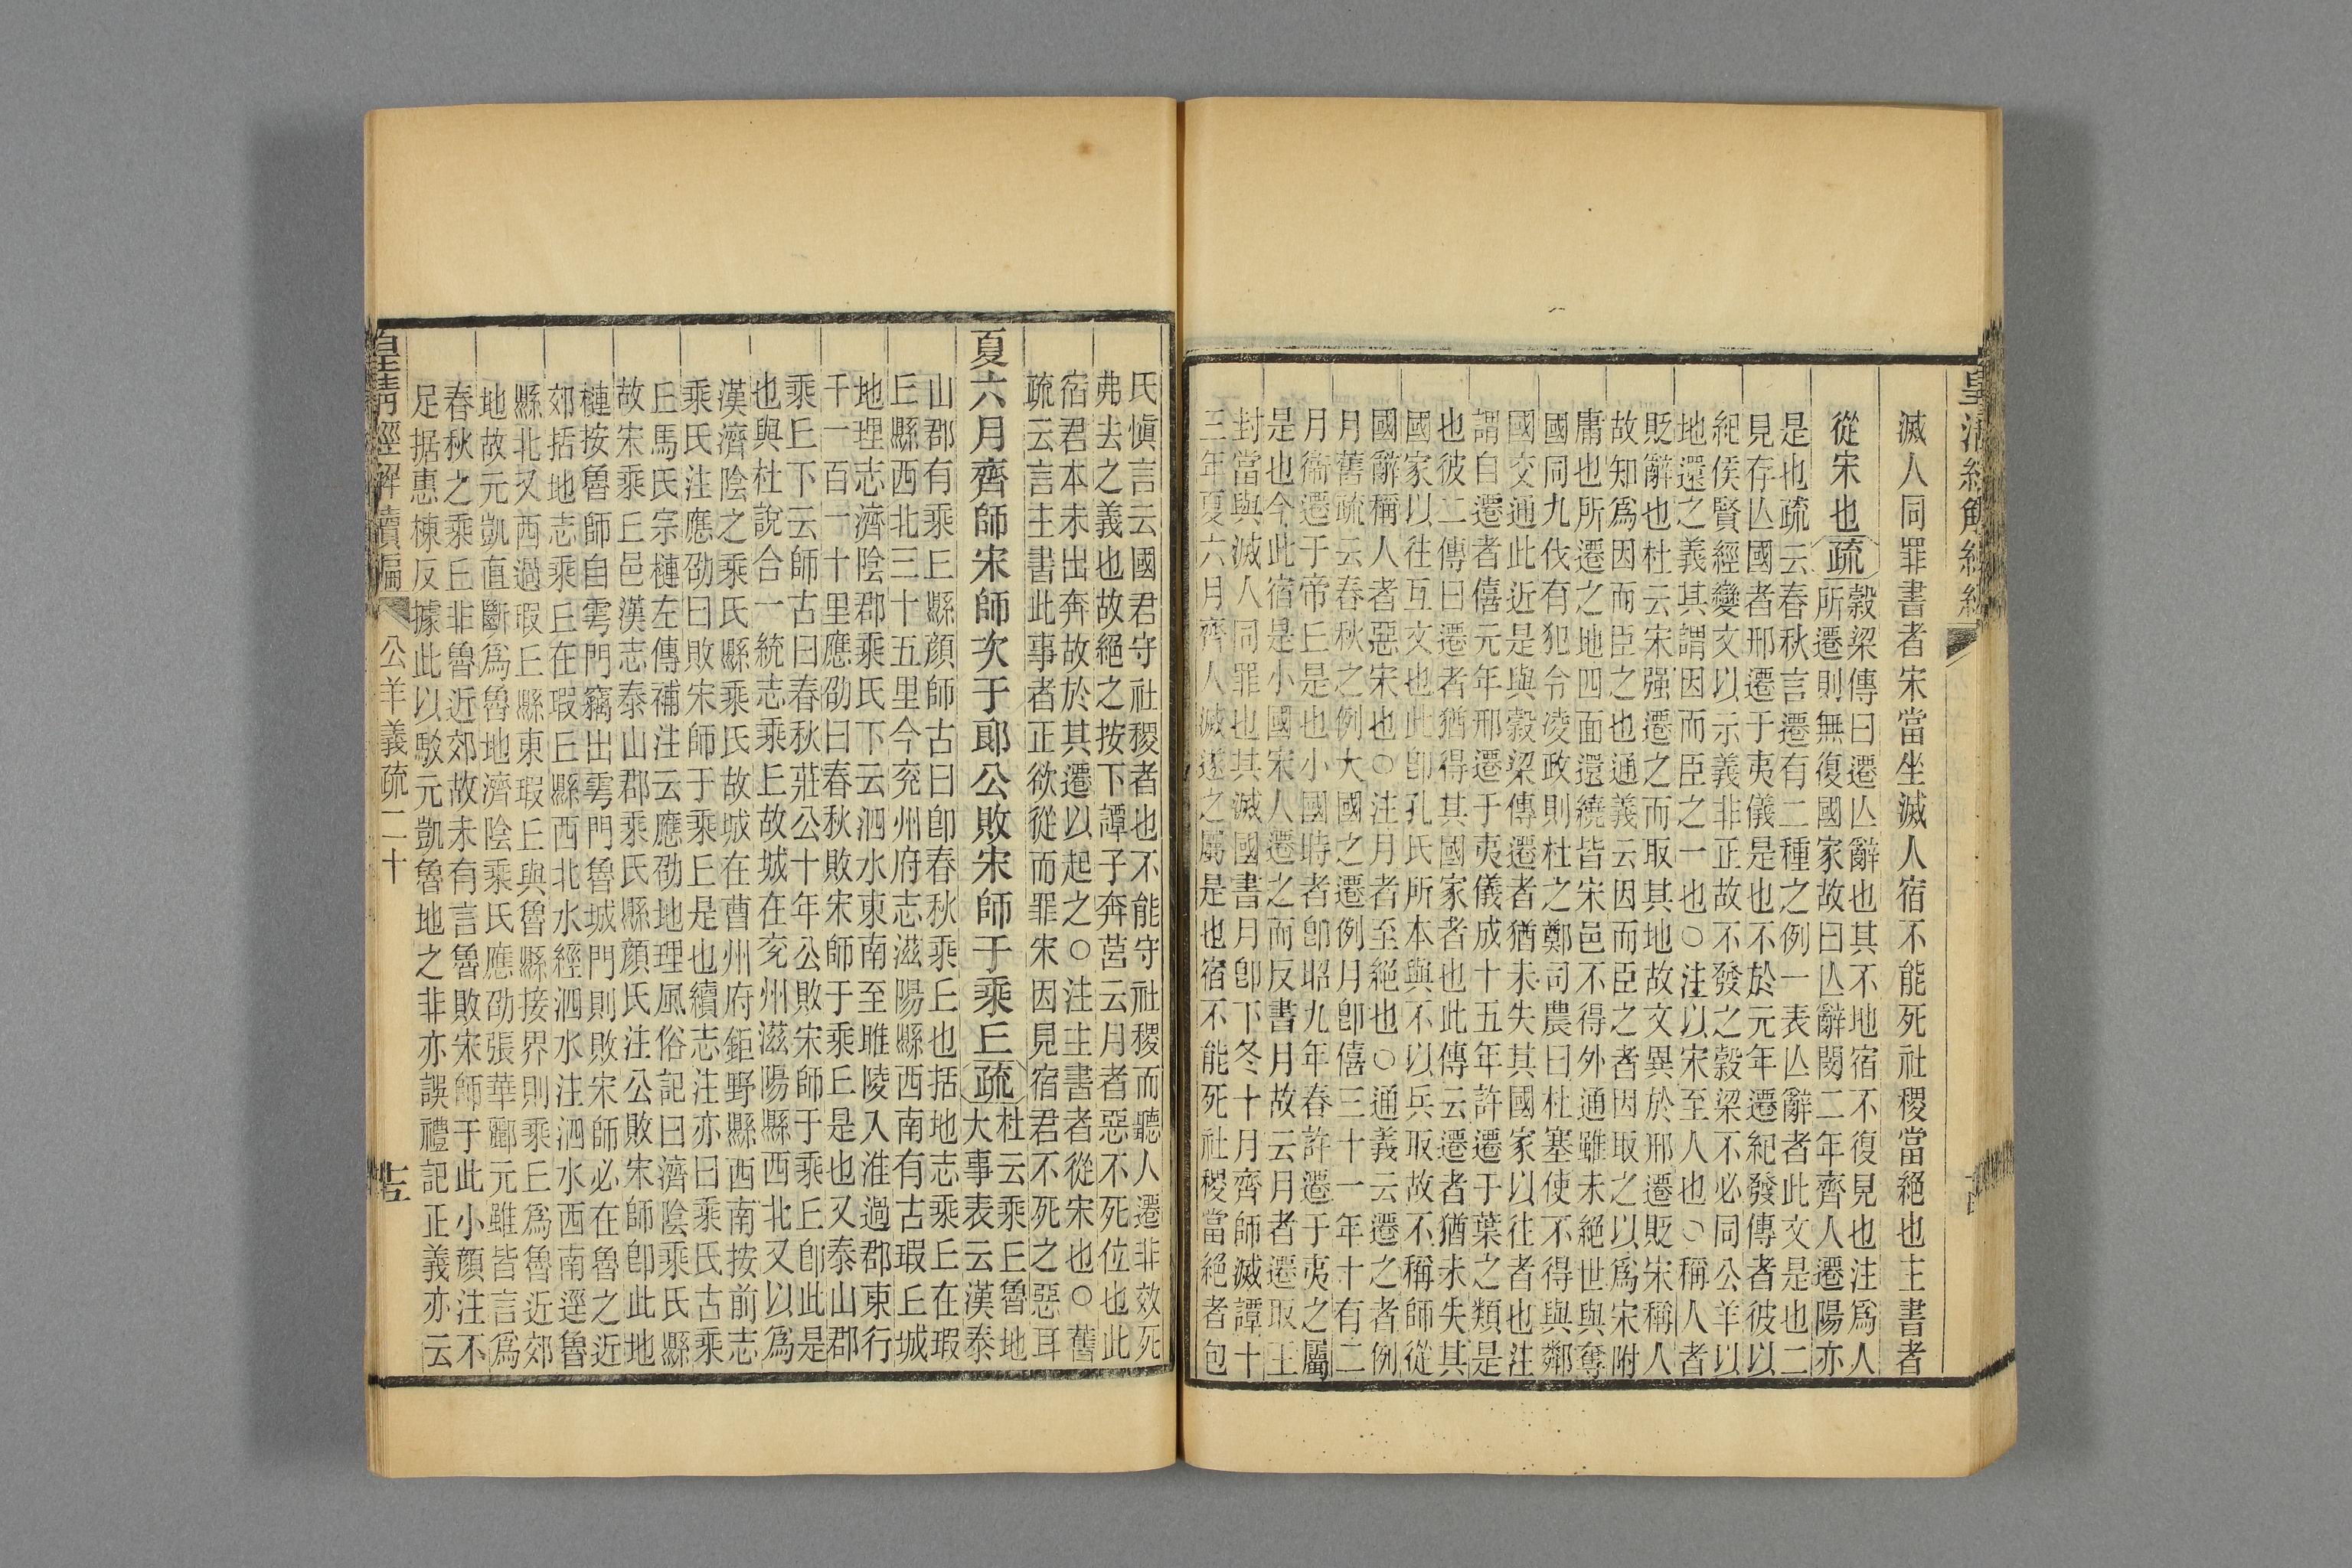 滅人同罪書者宋當坐滅人宿不能死社稷當絕也主書者
從宋也疏
穀梁傳曰遷亾辭也其不地宿不復見也注爲人
所遷則無復國家故曰亾辭閔二年齊人遷陽亦
是也疏云春秋言遷有二種之例一表亾辭者此文是也二
見存亾國者邢遷于夷儀是也不於元年遷紀發傳者彼以
紀侯賢經變文以示義非正故不發之穀梁不必同公羊以
地還之義其謂因而臣之一也○注以宋至人也○稱人者
貶辭也杜云宋强遷之而取其地故文異於邢遷貶宋稱人
故知爲因而臣之也通義云因而臣之者因取之以爲宋附
庸也所遷之地四面還繞皆宋邑不得外通雖未絕世與奪
國同九伐有犯令凌政則杜之鄭司農曰杜塞使不得與鄰
國交通此近是與穀梁傳遷者猶未失其國家以往者也注
謂自遷者僖元年邢遷于夷儀成十五年許遷于葉之類是
也彼二傳曰遷者猶得其國家者也此傳云遷者猶未失其
國家以往互文也此卽孔氏所本與不以兵取故不稱師從
國辭稱人者惡宋也○注月者至絕也○通義云遷之者例
月舊疏云春秋之例大國之遷例月卽僖三十一年十有二
月衞遷于帝丘是也小國時者卽昭九年春許遷于夷之屬
是也今此宿是小國宋人遷之而反書月故云月者遷取王
封當與滅人同罪也其滅國書月卽下冬十月齊師滅譚十
三年夏六月齊人滅遂之屬是也宿不能死社稷當絕者包
氏愼言云國君守社稷者也不能守社稷而聽人遷非效死
弗去之義也故絕之按下譚子奔莒云月者惡不死位也此
宿君本未出奔故於其遷以起之○注主書者從宋也○舊
疏云言主書此事者正欲從而罪宋因見宿君不死之惡耳
夏六月齊師宋師次于郎公敗宋師于乘丘疏
杜云乘丘魯地
大事表云漢泰
山郡有乘丘縣顔師古曰卽春秋乘丘也括地志乘丘在瑕
丘縣西北三十五里今兖州府志滋陽縣西南有古瑕丘城
地理志濟陰郡乘氏下云泗水東南至睢陵入淮過郡東行
千一百一十里應劭曰春秋敗宋師于乘丘是也又泰山郡
乘丘下云師古曰春秋莊公十年公敗宋師于乘丘卽此是
也與杜說合一統志乘丘故城在兖州滋陽縣西北又以爲
漢濟陰之乘氏縣乘氏故城在曹州府鉅野縣西南按前志
乘氏注應劭曰敗宋師于乘丘是也續志注亦曰乘氏古乘
丘馬氏宗槤左傳補注云應劭地理風俗記曰濟陰乘氏縣
故宋乘丘邑漢志泰山郡乘氏縣顔氏注公敗宋師卽此地
槤按魯師自雩門竊出雩門魯城門則敗宋師必在魯之近
郊括地志乘丘在瑕丘縣西北水經泗水注泗水西南逕魯
縣北又西過瑕丘縣東瑕丘與魯縣接界則乘丘爲魯近郊
地故元凱直斷爲魯地濟陰乘氏應劭張華酈元雖皆言爲
春秋之乘丘非魯近郊故未有言魯敗宋師于此小顔注不
足据惠棟反據此以駮元凱魯地之非亦誤禮記正義亦云
皇清經解續編
公羊義疏二十